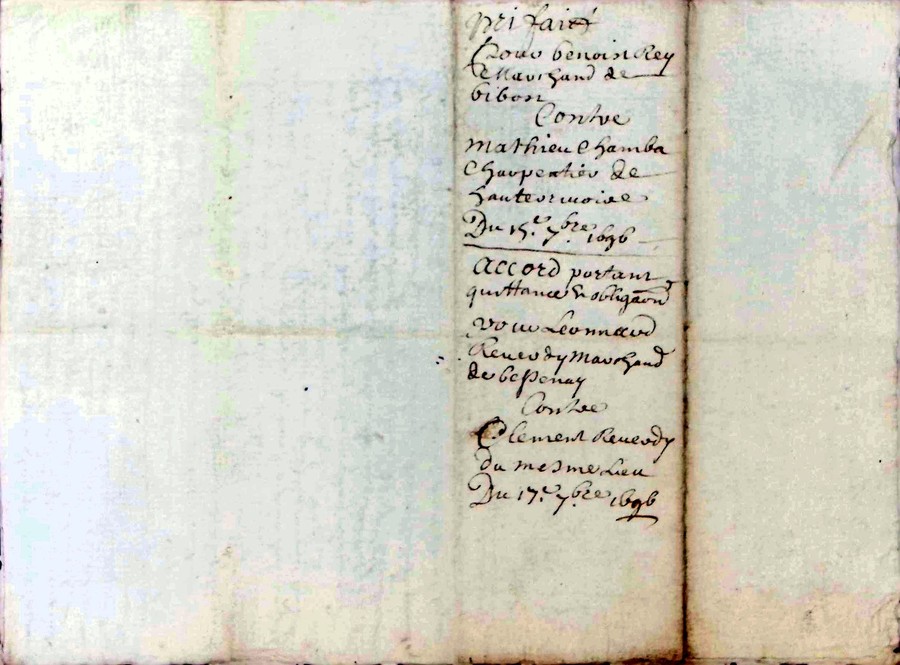 prifaict
Pour benoin Rey
Marchand de
bibon
Contre
Mathieu Chamba
Charpentier de
hauterivoire
Du 15.e 7.bre 1696
Accord portant
quittance & obligaon
pour Leonnard
Reverdy Marchand
de bessenay
Contre
Clement Reverdy
du mesme Lieu
Du 17.e 7.bre 1696